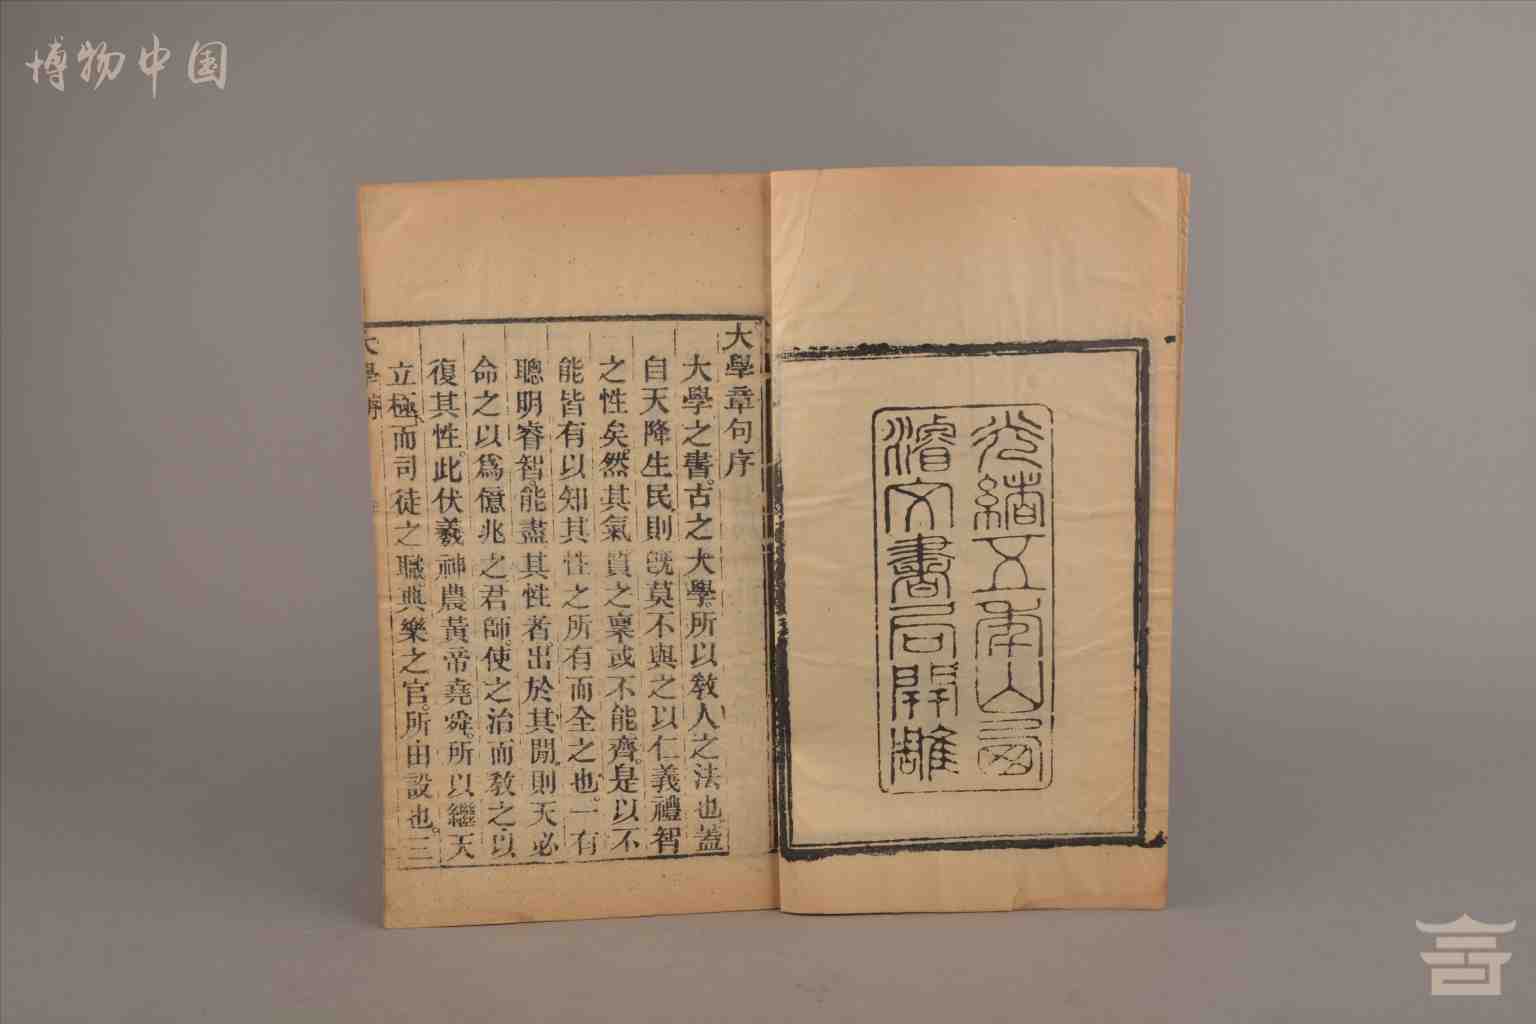 博物中国
光緒五年山西
濬文書局開雕
大學章句序
大學之書。古之大學。所以敎人之法也蓋
自天降生民則旣莫不與之以仁義禮智
之性矣。然其氣質之稟或不能齊。是以不
能皆有以知其性之所有而全之也。一有
聰明睿智。能盡其性者。出於其閒則天必
命之以爲億兆之君師。使之治而敎之以
復其性。此伏羲神農黃帝堯舜。所以繼天
立極而司徒之職典樂之官。所由設也。三
大學序